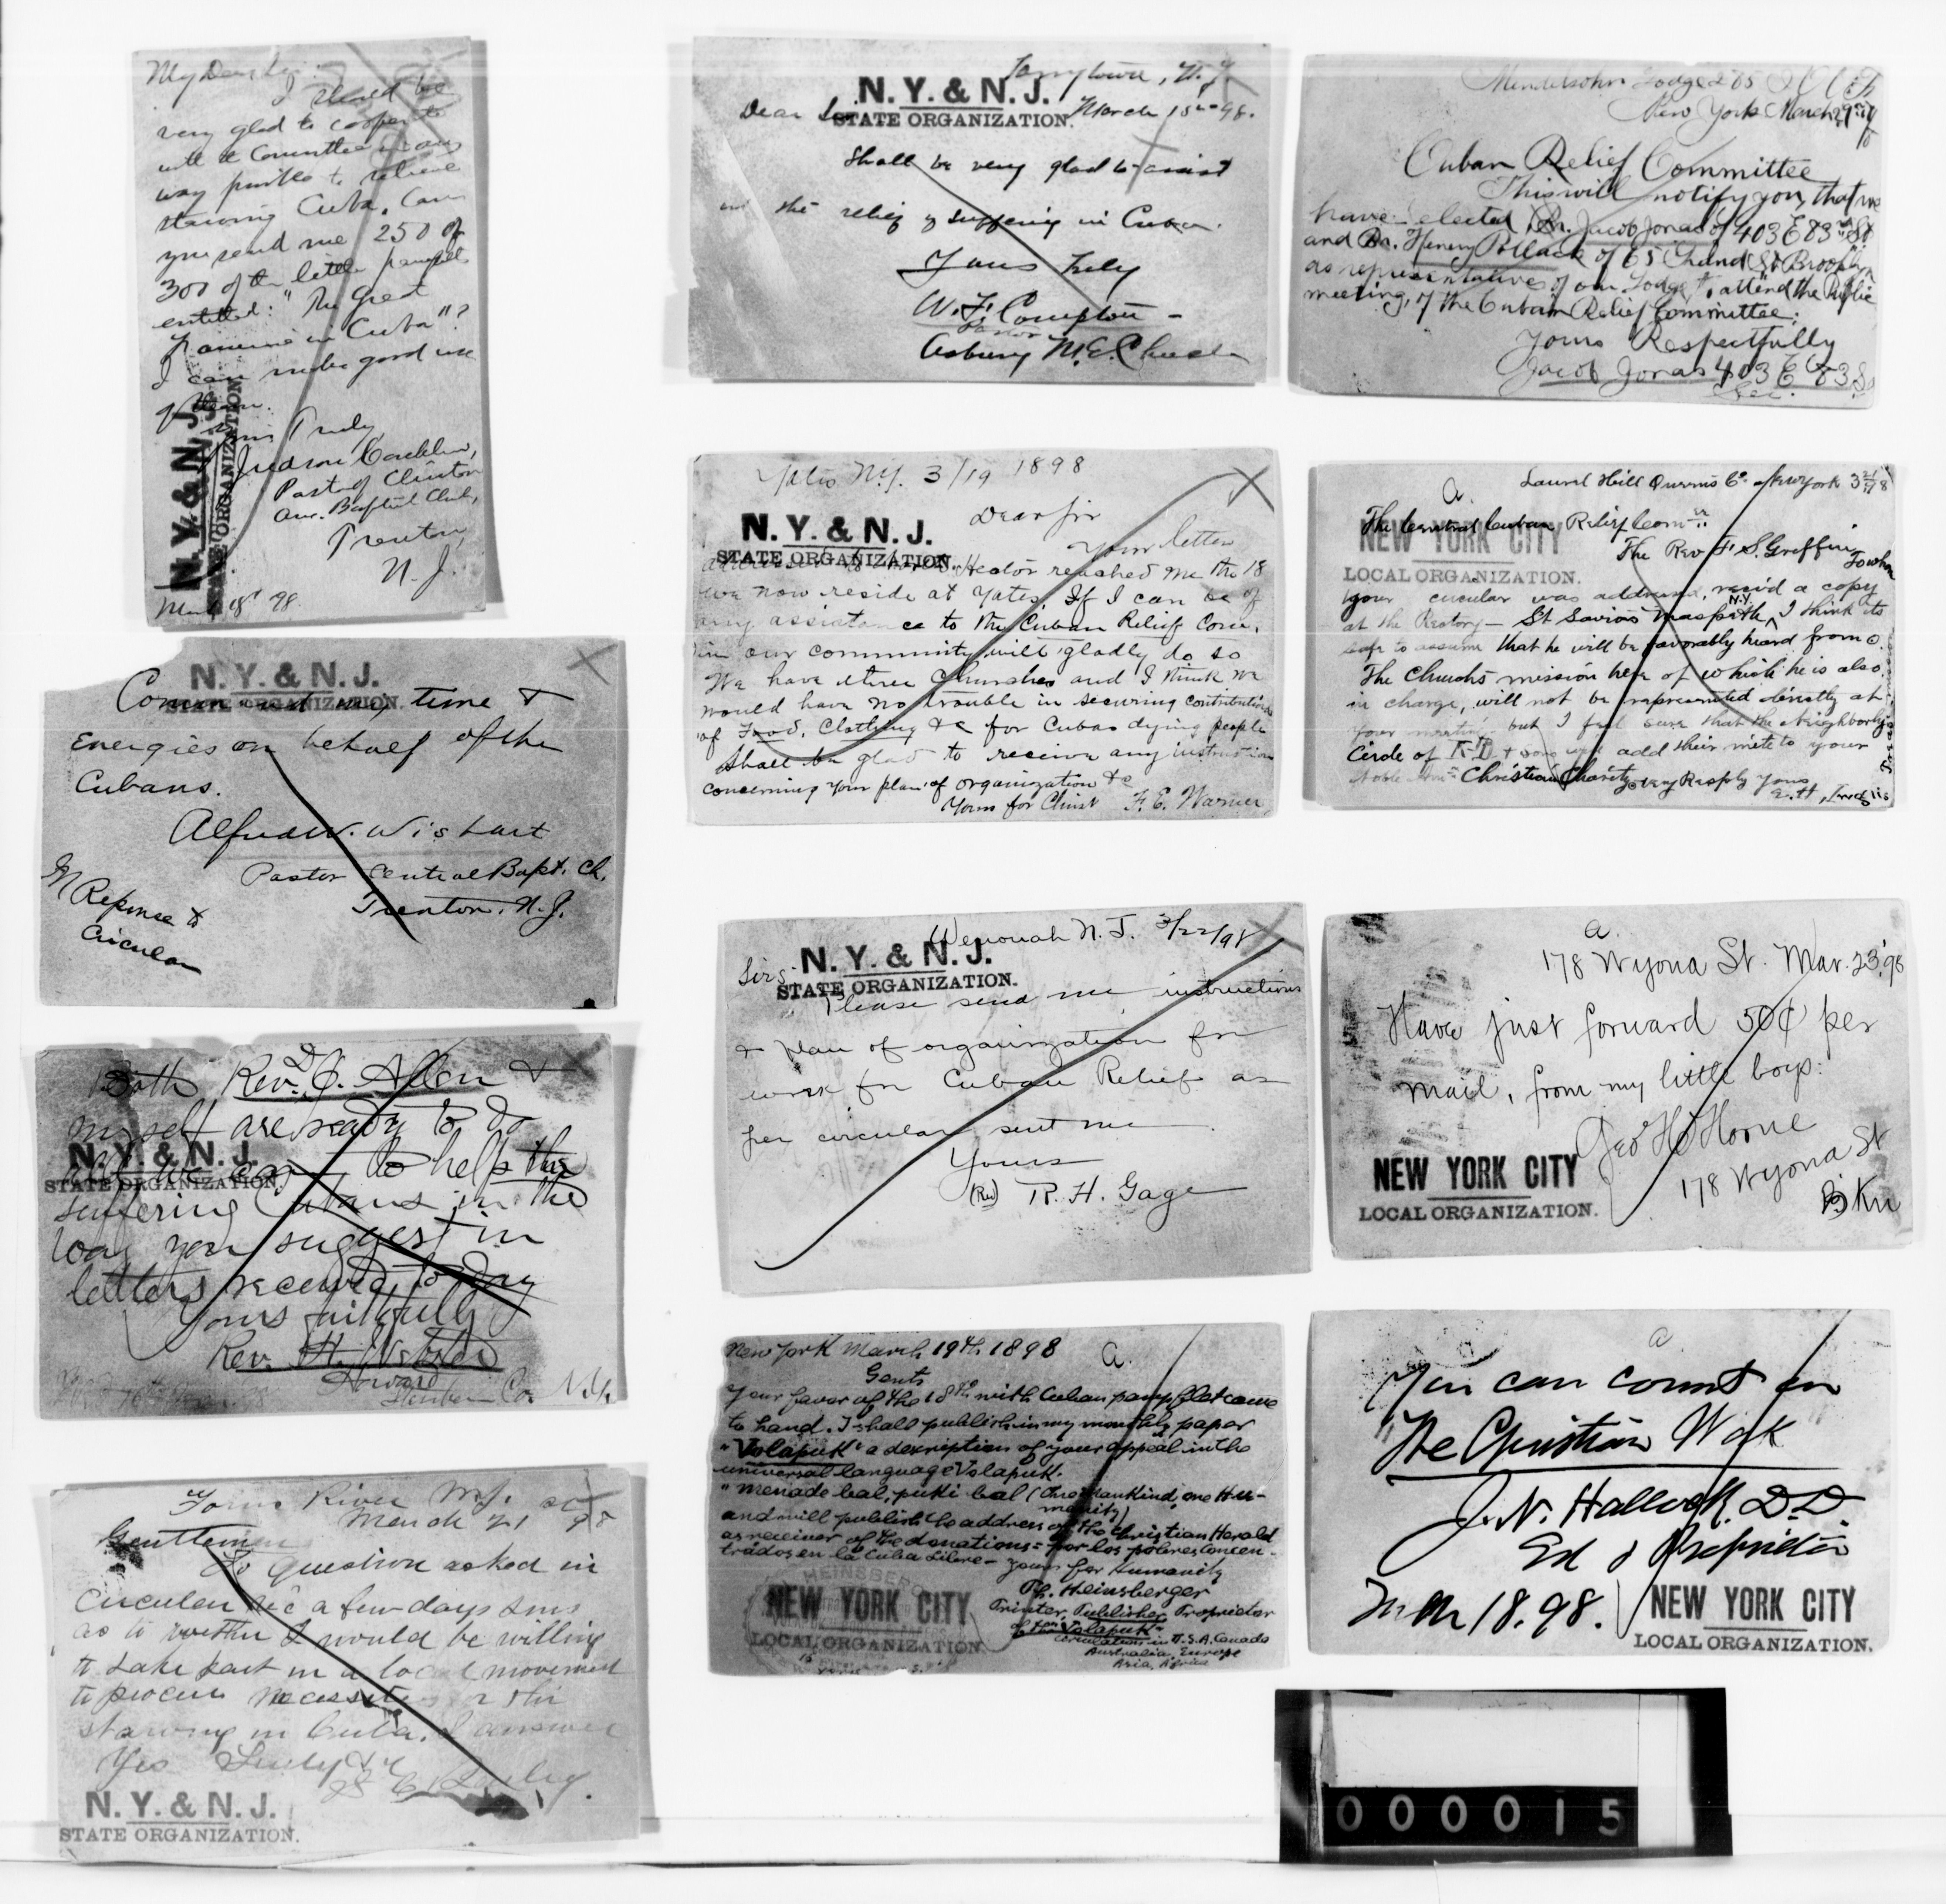 My Dear Sir:
I should be
very glad to cooperate
with the Committee in any
way possible to relieve
starving Cuba. Can
you send me 250 or
300 of the little pamphlets
entitled: "The Great
Famine in Cuba"?
I can make good use
of them.
Yours Truly,
Judson Conklin,
Pastor of Clinton
Ave. Baptist Church,
Trenton,
N. J.
March 18th 98.
N. Y. & N. J.
STATE ORGANIZATION.
N. Y. & N. J.
STATE ORGANIZATION.
Command my time &
Energies on behalf of the
Cubans.
Alfred W. Wishart
Pastor Central Bapt. Ch.
Trenton. N. J.
In Reponse to
Circular
Both Rev. D. J. Allen &
myself are ready to do
all we can to help the
suffering Cubans in the
way you suggest in
letters received to-day
Yours faithfully
Rev. H. Webster
Howard
Steuben Co. N.Y.
N. Y. & N. J.
STATE ORGANIZATION.
Toms River N.J.
March 21 98
Gentlemen
To Question asked in
Circular rec'd a few days since
as to wether I would be willing
to take part in a local movement
to procure necessities for the
starving in Cuba. I answer
Yes Truly
N. Y. & N. J.
STATE ORGANIZATION.
Tarrytown, N. Y.
March 18th 98.
Dear Sir
N. Y. & N. J.
STATE ORGANIZATION.
Shall be very glad to assist
in the relief of suffering in Cuba.
Yours truly
W. F. Compton -
Pastor
Asbury M. E. Church
Yates N.Y. 3/19 1898
Dear Sir
N. Y. & N. J.
STATE ORGANIZATION.
Your letter
Hector reached me the 18
we now reside at Yates. If I can be of
any assistance to the Cuban Relief Com.
in our community will gladly do so
We have three Churches and I think we
would have no trouble in securing contributions
of Food, Clothing &c for Cubas dying people
Shall be glad to receive any instruction
concerning your plan of organization &c
Yours for Christ F. E. Warner
Wenonah N. J. 3/22/98
Sirs:
N. Y. & N. J.
STATE ORGANIZATION.
Please send me instructions
& plan of organization for
work for Cuban Relief as
per circular sent me.
Yours
(Rev) R. H. Gage
New York March 19th. 1898
a.
Gents
Your favor of the 18th with Cuban pamphlet came
to hand. I shall publish in my monthly paper
"Volapuk" a description of your appeal in the
universal language Volapuk.
"menade bal, puki bal (One mankind, one
and will publish the address of the Christian Herald
as receiver of the donations = por los pobres Concen-
trados en la Cuba Libre - yours for humanity
Ph. Heinsberger
Printer, Publisher Proprietor
of the "Volapuk"
Circulation in U.S.A. Canada
Australia, Europe
Asia, Africa
HEINSBERGER
NEW YORK CITY
LOCAL ORGANIZATION.
Mendelsohn Lodge 265
New York March 29th 98
Cuban Relief Committee
This will notify you, that we
have elected Br. Jacob Jonas of 403 E 83rd St
and Br. Henry Pollack of 65 Brooklyn
as representatives of our Lodge to attend the Public
meeting, of the Cuban Relief Committee;
Yours Respectfully
Jacob Jonas 403 E 83 St
Sec.
Laurel Hill Queens Co New York 3/21/98
a.
The Central Cuban Relief Comm
NEW YORK CITY
LOCAL ORGANIZATION.
The Rev F. S. Griffin, to whom
your circular was addressed, recv'd a copy
at the Rectory - St Saviors Maspeth N.Y, I think its
safe to assume that he will be favorably heard from.
The Church's mission here of which he is also
in charge, will not be represented directly at
your meeting but I feel sure that the Neighborly
Circle of K-D & sons will add their mite to your
noble Christian Charity, very Resply Yours
a.
178 Wyona St. Mar. 23, 98
Have just forward 50¢ per
mail, from my little boys:
Geo H Horne
178 Wyona St
Bkn
NEW YORK CITY
LOCAL ORGANIZATION.
a
You can count on
The Christian Work
J. N. Hallock. D.D.
Ed & Proprietor
Mch 18. 98.
NEW YORK CITY
LOCAL ORGANIZATION.
000015